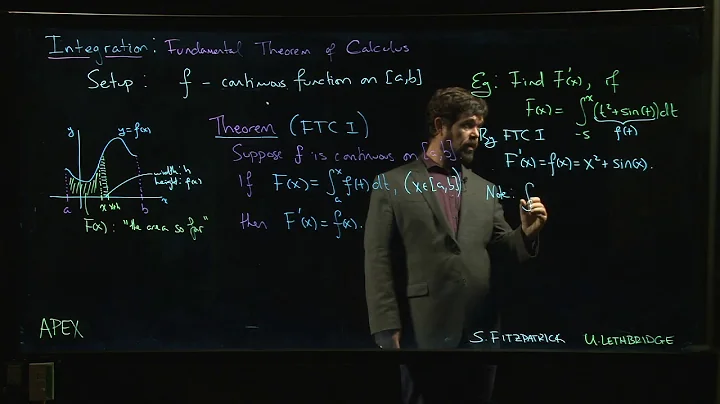 Integration: Fundamental Theorem of Calculus
Setup: f - continuous function on [a,b]
y
y=f(x)
width: h
height: f(x)
a
x x+h
b
x
F(x): "the area so far"
Theorem (FTC I)
Suppose f is continuous on [a,b].
If F(x) = ∫ₐˣ f(t)dt, (x∈[a,b])
then F'(x) = f(x).
Eg: Find F'(x), if
F(x) = ∫₋₅ˣ (t²+sin(t))dt
f(t)
By FTC I
F'(x) = f(x) = x²+sin(x).
Note: ∫
APEX
S. FITZPATRICK U. LETHBRIDGE